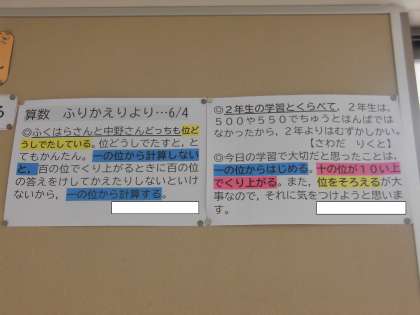 算数　ふりかえりより…6/4
◎ふくはらさんと中野さんどっちも位ど
うしでたしている。位どうしでたすと，と
てもかんたん。一の位から計算しない
と，百の位でくり上がるときに百の位
の答えをけしてかえたりしないといけ
ないから，一の位から計算する。
◎２年生の学習とくらべて，２年生は，
５００や５５０でちゅうとはんぱでは
なかったから，２年よりはむずかしかい。
【さわだ　りくと】
◎今日の学習で大切だと思ったことは，
一の位からはじめる。十の位が１０い上
でくり上がる。また，位をそろえるが大
事なので，それに気をつけようと思いま
す。